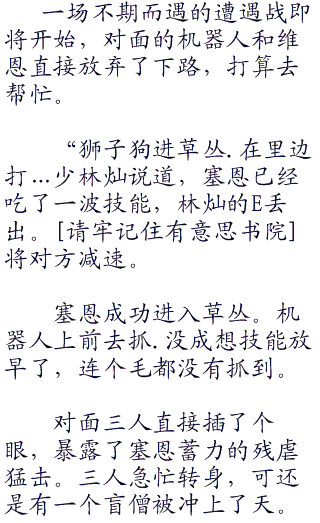 一场不期而遇的遭遇战即
将开始，对面的机器人和维
恩直接放弃了下路，打算去
帮忙。
“狮子狗进草丛.在里边
打…少林灿说道，塞恩已经
吃了一波技能，林灿的E丢
出。[请牢记住有意思书院]
将对方减速。
塞恩成功进入草丛。机
器人上前去抓.没成想技能放
早了，连个毛都没有抓到。
对面三人直接插了个
眼，暴露了塞恩蓄力的残虐
猛击。三人急忙转身，可还
是有一个盲僧被冲上了天。